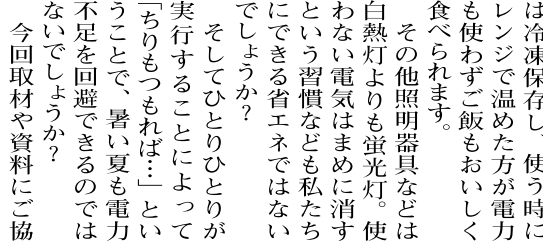 は冷凍保存し、使う時に
レンジで温めた方が電力
も使わずご飯もおいしく
食べられます。
　その他照明器具などは
白熱灯よりも蛍光灯。使
わない電気はまめに消す
という習慣なども私たち
にできる省エネではない
でしょうか？
　そしてひとりひとりが
実行することによって
「ちりもつもれば…」とい
うことで、暑い夏も電力
不足を回避できるのでは
ないでしょうか？
　今回取材や資料にご協